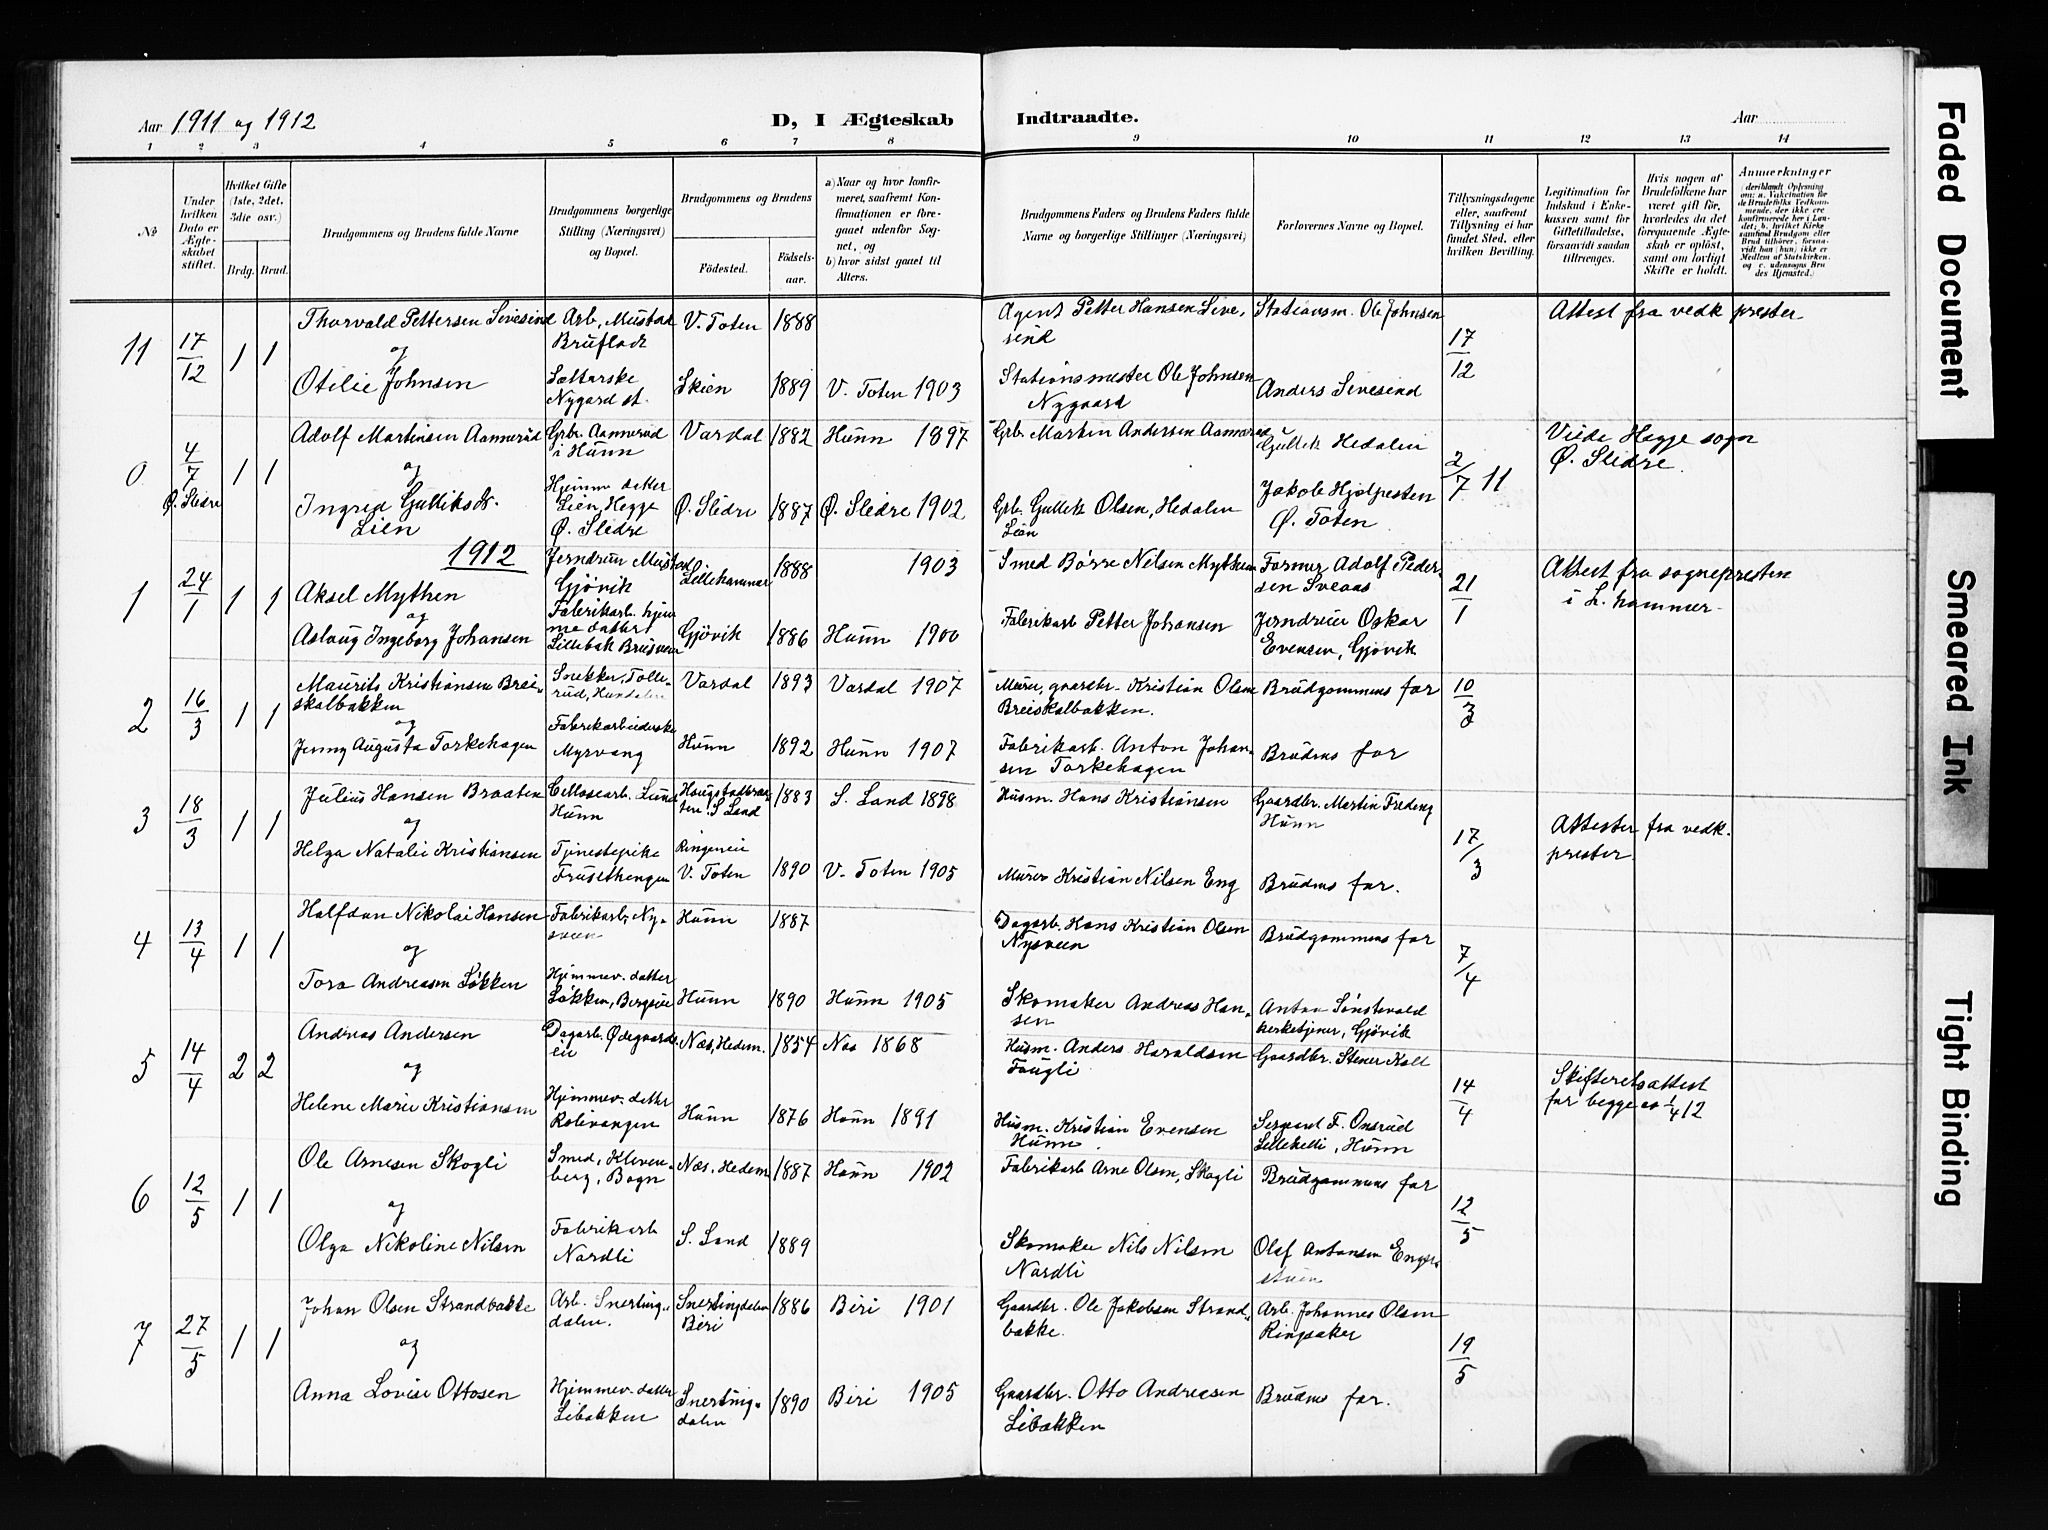 Aar 1911 og 1912
D, I Ægteskab Indtraadte.
Aar
1 2 3 4 5 6 7 8 9 10 11 12 13 14
No
Under hvilken Dato er Ægteskabet stiftet.
Hvilket Gifte (1ste, 2det, 3die osv.)
Brdg. Brud.
Brudgommens og Brudens fulde Navne
Brudgommens borgerlige Stilling (Næringsvei) og Bopæl.
Brudgommens og Brudens
Födested.
Födsels-aar.
a) Naar og hvor konfirmeret, saafremt Konfirmationen er foregaaet udenfor Sognet, og
b) hvor sidst gaaet til Alters.
Brudgommens Faders og Brudens Faders fulde Navne og borgerlige Stillinger (Næringsvei)
Forlovernes Navne og Bopæl.
Tillysningsdagene eller, saafremt Tillysning ei har fundet Sted, efter hvilken Bevilling.
Legitimation for Indskud i Enkekassen samt for Giftetilladelse, forsaavidt saadan tiltrænges.
Hvis nogen af Brudefolkene har været gift för, hvorledes da det foregaaende Ægteskab er oplöst, samt om lovligt Skifte er holdt.
Anmerkninger
11 17/12 1 1 Thorvald Pettersen Sivesind Arb. Mustad Brufladt V. Toten 1888 Agent Petter Hansen Sivesind Stationsm. Ole Johnsen 17/12 Attest fra vedk prester
og
Otilie Johnsen Nygard st. Skien 1889 V. Toten 1903 Stationsmester Ole Johnsen Nygaard Anders Sivesind
0 4/7 Ø. Slidre 1 1 Adolf Martinsen Aannerud Grbr. Aannerud i Hunn Vardal 1882 Hunn 1897 Grb. Martin Andersen Aannerud Gullik Hedalen 2/7 11 Viede Hegge sogn Ø. Slidre.
og
Ingrid Gulliksdr. Lien Hjemmev. datter Lien, Hegge Ø. Slidre Ø. Slidre 1887 Ø. Slidre 1902 Grb. Gullik Olsen, Hedalen Lien Jakob Hjelpesten Ø. Toten
1912
1 24/1 1 1 Aksel Mythen Jerndreier Mustad Gjövik Lillehammer 1888 1903 Smed Börre Nilsen Mythen Former Adolf Pedersen Sveaas 21/1 Attest fra sognepresten i L. hammer
og
Aslaug Ingeborg Johansen Fabrikarb. hjemme datter, Lillebak Brusveen Gjövik 1886 Hunn 1900 Fabrikarb Petter Johansen Jerndreier Oskar Evensen, Gjövik
2 16/3 1 1 Maurits Kristiansen Breiskalbakken Snekker, Tollerud, Hundalen Vardal 1893 Vardal 1907 Murer, gaardbr. Kristian Olsen Breiskalbakken. Brudgommens far 10/3
og
Jenny Augusta Torkehagen Fabrikarbeiderske Myrvang Hunn 1892 Hunn 1907 Fabrikarb. Anton Johansen Torkehagen Brudens far
3 18/3 1 1 Julius Hansen Braaten Hunn S. Land 1883 S. Land 1898 Husm. Hans Kristiansen Gaardbr. Martin Hunn 17/3 Attester fra vedk. prester.
og
Helga Natalie Kristiansen Tjenestepike V. Toten 1890 V. Toten 1905 Murer Kristian Nilsen Eng Brudens far.
4 13/4 1 1 Halfdan Nikolai Hansen Fabrikarb, Nysveen Hunn 1887 Dagarb. Hans Kristian Olsen Nysveen Brudgommens far 7/4
og
Tora Andreasen Løkken Hjemmev. datter Løkken, Bergsvee Hunn 1890 Hunn 1905 Skomaker Andreas Hansen Anton Sønstevold kirketjener, Gjövik
5 14/4 2 2 Andreas Andersen Dagarb. Ødegaardseie Næs, Hedem. 1854 Næs 1868 Husm. Anders Haraldsen Faugli Gaardbr. Stener Kall 14/4 Skifteretsattest for begge av 1/4 12
og
Helene Marie Kristiansen Hjemmev. datter Kolivangen Hunn 1876 Hunn 1891 Husm. Kristian Evensen Hunn Sergeant F. Onsrud Lillekelli, Hunn
6 12/5 1 1 Ole Arnesen Skogli Smed, Klevenberg, Bagn Næs, Hedem 1887 Hunn 1902 Fabrikarb Arne Olsen, Skogli Brudgommens far 12/5
og
Olga Nikoline Nilsen Fabrikarb Nordli S. Land 1889 Skomaker Nils Nilsen Nordli Olaf Antonsen Engerstuen
7 27/5 1 1 Johan Olsen Strandbakke Arb. Snertingdalen. Snertingdalen Biri 1886 Biri 1901 Gaardbr. Ole Jakobsen Strandbakke. Arb. Johannes Olsen Ringsaker 19/5
og
Anna Lovise Ottosen Hjemmev. datter Libakken Snertingdalen 1890 Biri 1905 Gaardbr. Otto Andreasen Libakken Brudens far.
Faded Document
Smeared Ink
Tight Binding